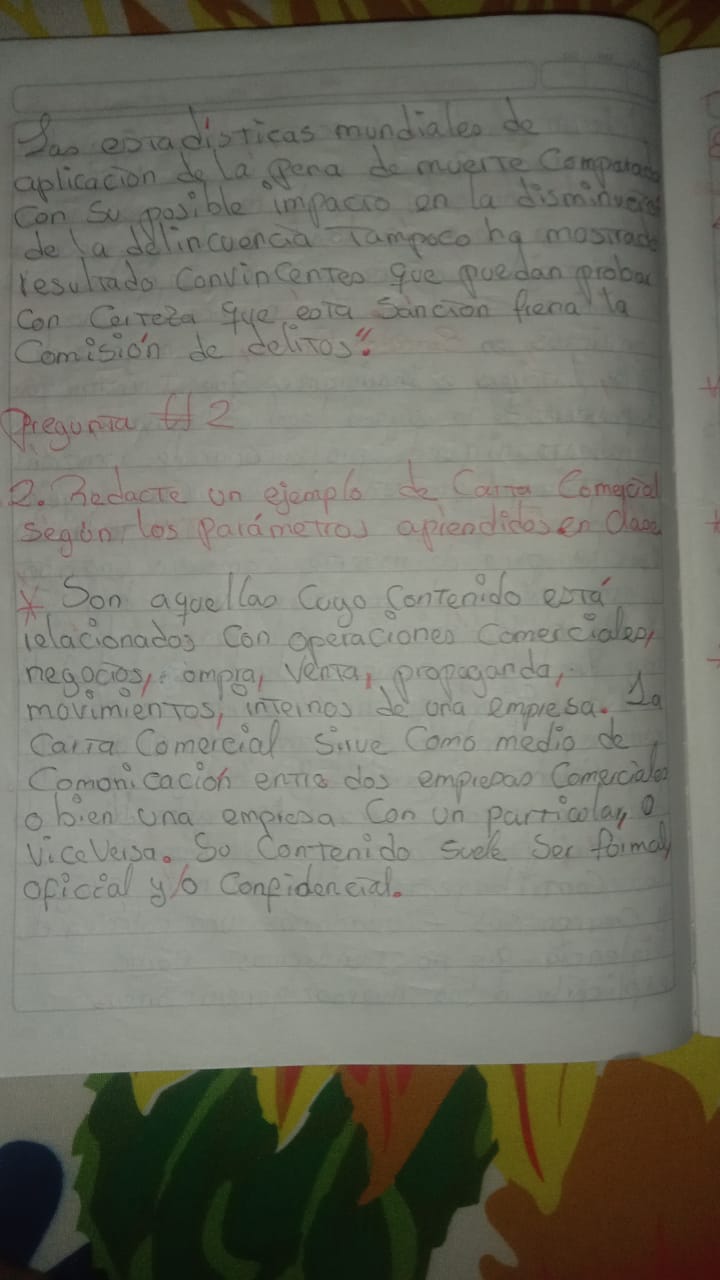 Las estadisticas mundiales de
aplicacion de la pena de muerte Comparada
Con su posible impacto en la disminución
de la delincuencia Tampoco ha mostrado
resultado Convincentes que puedan probar
Con Certeza que esta Sanción frena la
Comisión de delitos".
Pregunta #2
2. Redacte un ejemplo de Carta Comercial
según los parámetros aprendidos en Clase
* Son aquellas Cuyo Contenido está
relacionados Con operaciones Comerciales,
negocios, ompra, Venta, propaganda,
movimientos, internos de una empresa. La
Carta Comercial Sirve Como medio de
Comonicación entre dos empresas Comerciales
o bien una empresa Con un particolar, o
ViceVersa. So Contenido suele Ser formal,
oficial y/o Confidencial.